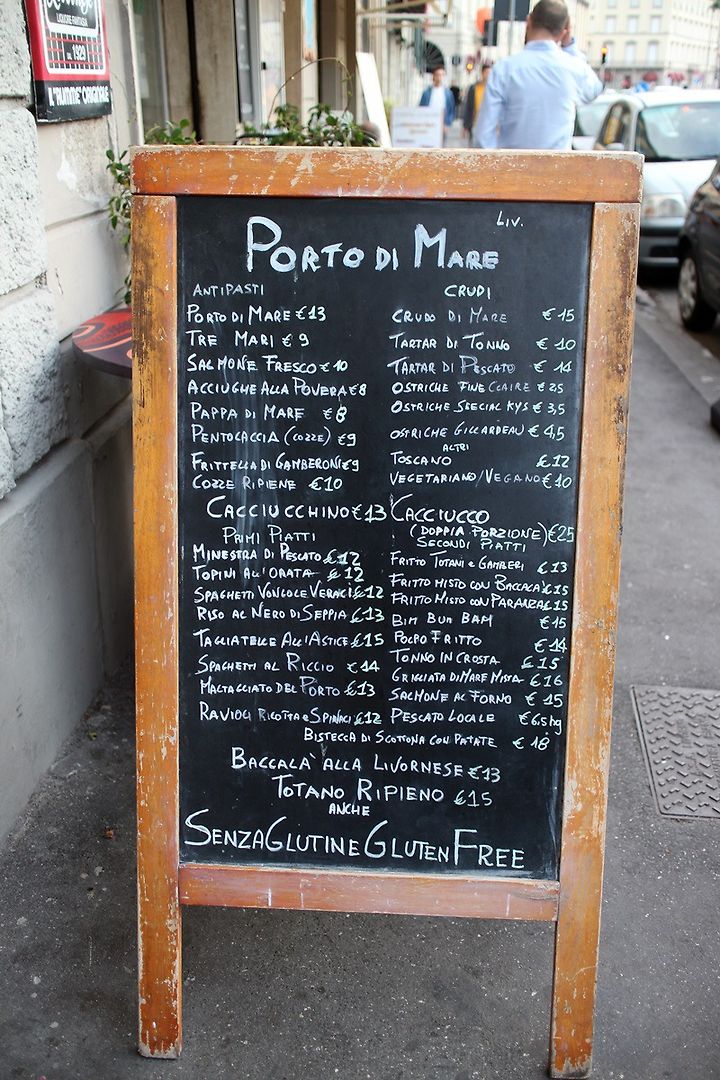 LIQUORE FANTASIA
dal 1929
IL "RUMME" ORIGINALE
LIV.
PORTO DI MARE
ANTIPASTI
PORTO DI MARE €13
TRE MARI € 9
SALMONE FRESCO €10
ACCIUGHE ALLA POVERA €8
PAPPA DI MARE €8
PENTOCACCIA (COZZE) €9
FRITTELLA DI GAMBERONI €9
COZZE RIPIENE €10
CACCIUCCHINO €13
PRIMI PIATTI
MINESTRA DI PESCATO €12
TOPINI ALL'ORATA €12
SPAGHETTI VONGOLE VERACI €12
RISO AL NERO DI SEPPIA €13
TAGLIATELLE ALL'ASTICE €15
SPAGHETTI AL RICCIO €14
MALTAGLIATO DEL PORTO €13
RAVIOLI RICOTTA E SPINACI €12
CRUDI
CRUDO DI MARE €15
TARTAR DI TONNO €10
TARTAR DI PESCATO €14
OSTRICHE FINE CLAIRE € 2,5
OSTRICHE SPECIAL KYS € 3,5
OSTRICHE GILLARDEAU € 4,5
ALTRI
TOSCANO €12
VEGETARIANO/VEGANO €10
CACCIUCCO
(DOPPIA PORZIONE) €25
SECONDI PIATTI
FRITTO TOTANI E GAMBERI €13
FRITTO MISTO CON BACCALA' €15
FRITTO MISTO CON PARANZA €15
BIM BUM BAM €15
POLPO FRITTO €14
TONNO IN CROSTA €15
GRIGLIATA DI MARE MISTA €16
SALMONE AL FORNO €15
PESCATO LOCALE €6,5 hg
BISTECCA DI SCOTTONA CON PATATE € 18
BACCALA' ALLA LIVORNESE €13
TOTANO RIPIENO €15
ANCHE
SENZA GLUTINE GLUTEN FREE